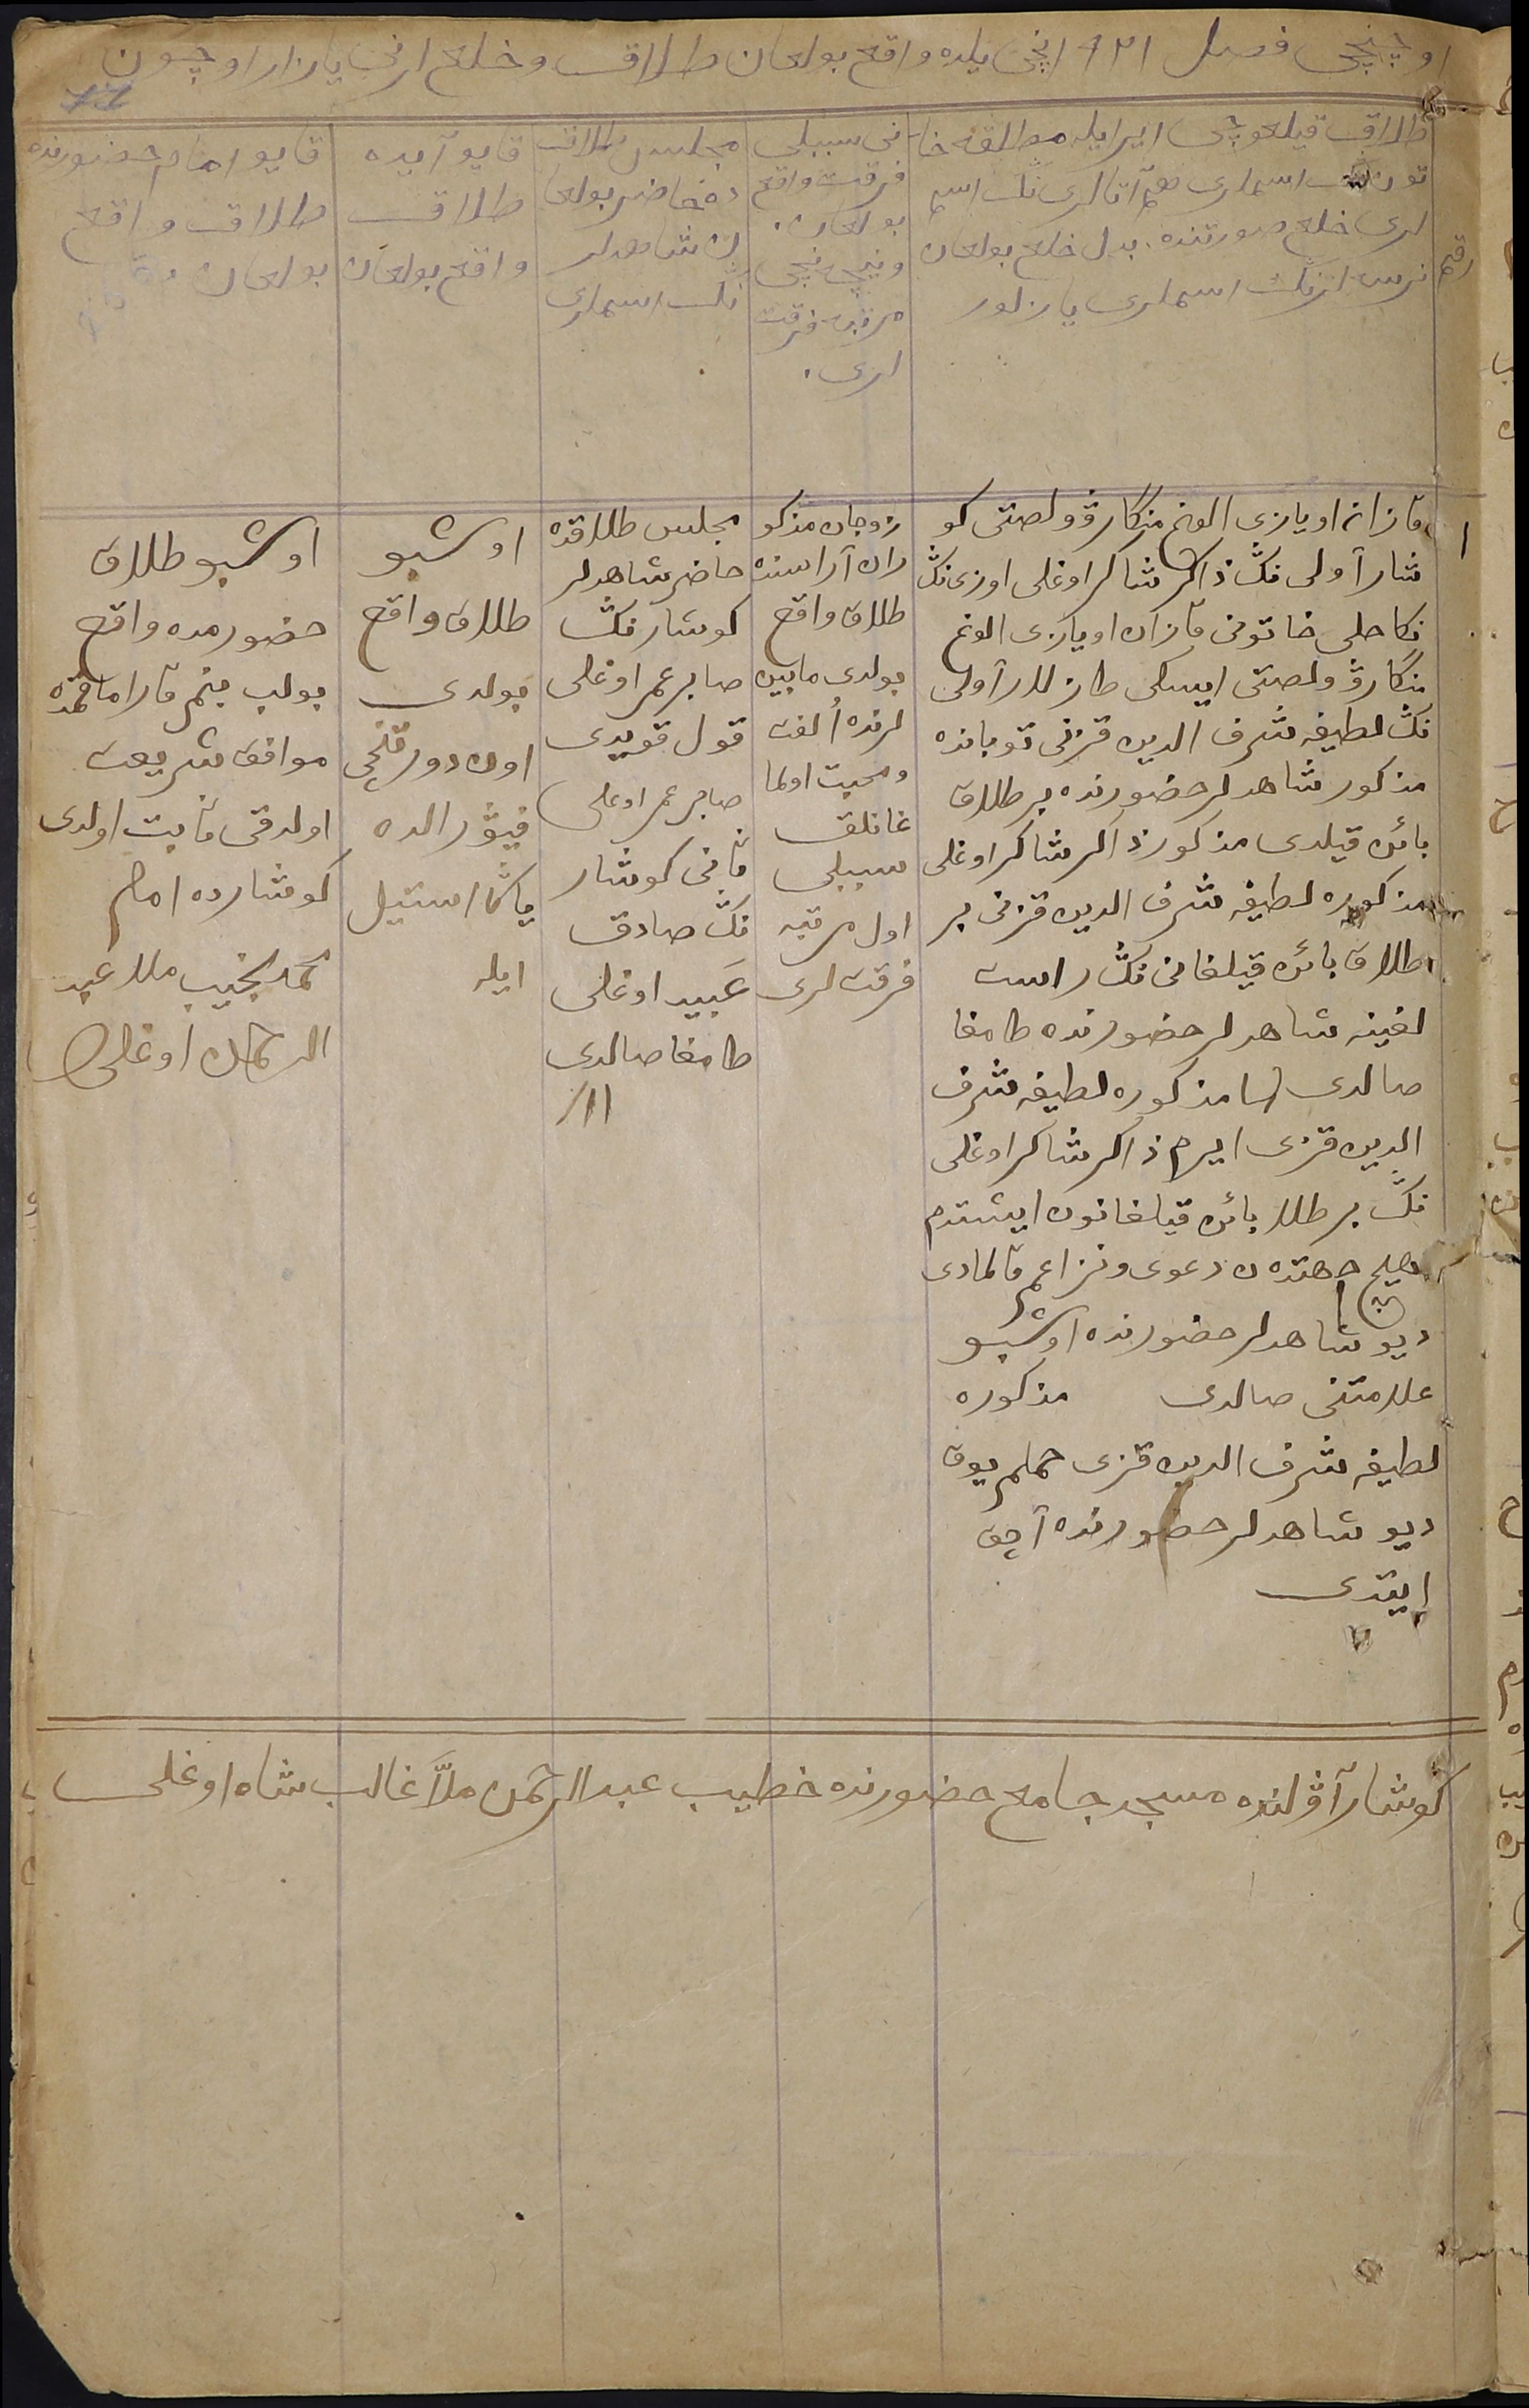 اوچنچی فصل ۱۹۲۱ انچی یلده واقع بولغان طلاق و خلع لرنی یازار اوچون
رقم
طلاق قیلغوچی ایر ایله مطلقه خا
تون اسملری هم آتالری ننگ اسم
لری خلع صورتنده بدل خلع بولغان
نرسه لرننگ اسملری یازلور
نی سببلی
فرقت واقع
بولغان.
و نیچه نچی
مرتبه فرقت
لری.
مجلس طلاق
ده حاضر بولغا
ن شاهدلر
ننگ اسملری
قایو آیده
طلاق
واقع بولغان
قایو امام حضورنده
طلاق واقع
بولغان
۱
قازان اویازی الوغ منکارۋ ولصتی کو
شار آولی ننگ ذاکر شاکر اوغلی اوزی ننگ
نکاحلی خاتونی قازان اویازی الوغ
منکارۋ ولصتی ایسکی طازلار آولی
ننگ لطیفه شرف الدین قزنی توبانده
مذکور شاهدلر حضورنده بر طلاق
بائن قیلدی مذکور ذاکر شاکر اوغلی
مذکوره لطیفه شرف الدین قزنی بر
طلاق بائن قیلغانی ننگ راست
لغینه شاهدلر حضورنده طامغا
صالدی مذکوره لطیفه شرف
الدین قزی ایرم ذاکر شاکر اوغلی
ننگ بر طلاق بائن قیلغانون ایشتدم
هیچ جهتدن دعوی و نزاعم قالمادی
دیو شاهدلر حضورنده اوشبو
علامتنی صالدی مذکوره
لطیفه شرف الدین قزی حملم یوق
دیو شاهدلر حضورنده آچق
ایتدی
زوجان مذکو
ران آراسنده
طلاق واقع
بولدی مابین
لرنده اُلفت
و محبت اولما
غانلق
سببلی
اول مرتبه
فرقت لری
مجلس طلاقده
حاضر شاهدلر
کوشار ننگ
صابر عمر اوغلی
قول قویدی
صابر عمر اوغلی
ثانی کوشار
ننگ صادق
عبید اوغلی
طامغا صالدی
۱۱/
اوشبو
طلاق واقع
بولدی
اون دورتنچی
فیۋرالده
یاڭا استیل
ایله
اوشبو طلاق
حضورمده واقع
بولب ینم قاراماقمده
موافق شریعت
اولدقی ثابت اولدی
کوشارده امام
محمد نجیب ملا عبد
الرحمان اوغلی
کوشار آۋلنده مسجد جامع حضورنده خطیب عبد الرحمن ملّا غالب شاه اوغلی